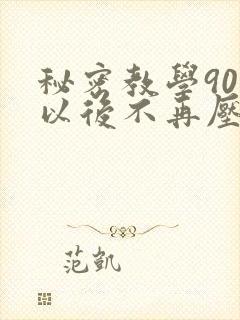 秘密教學90
以後不再壓
范凱